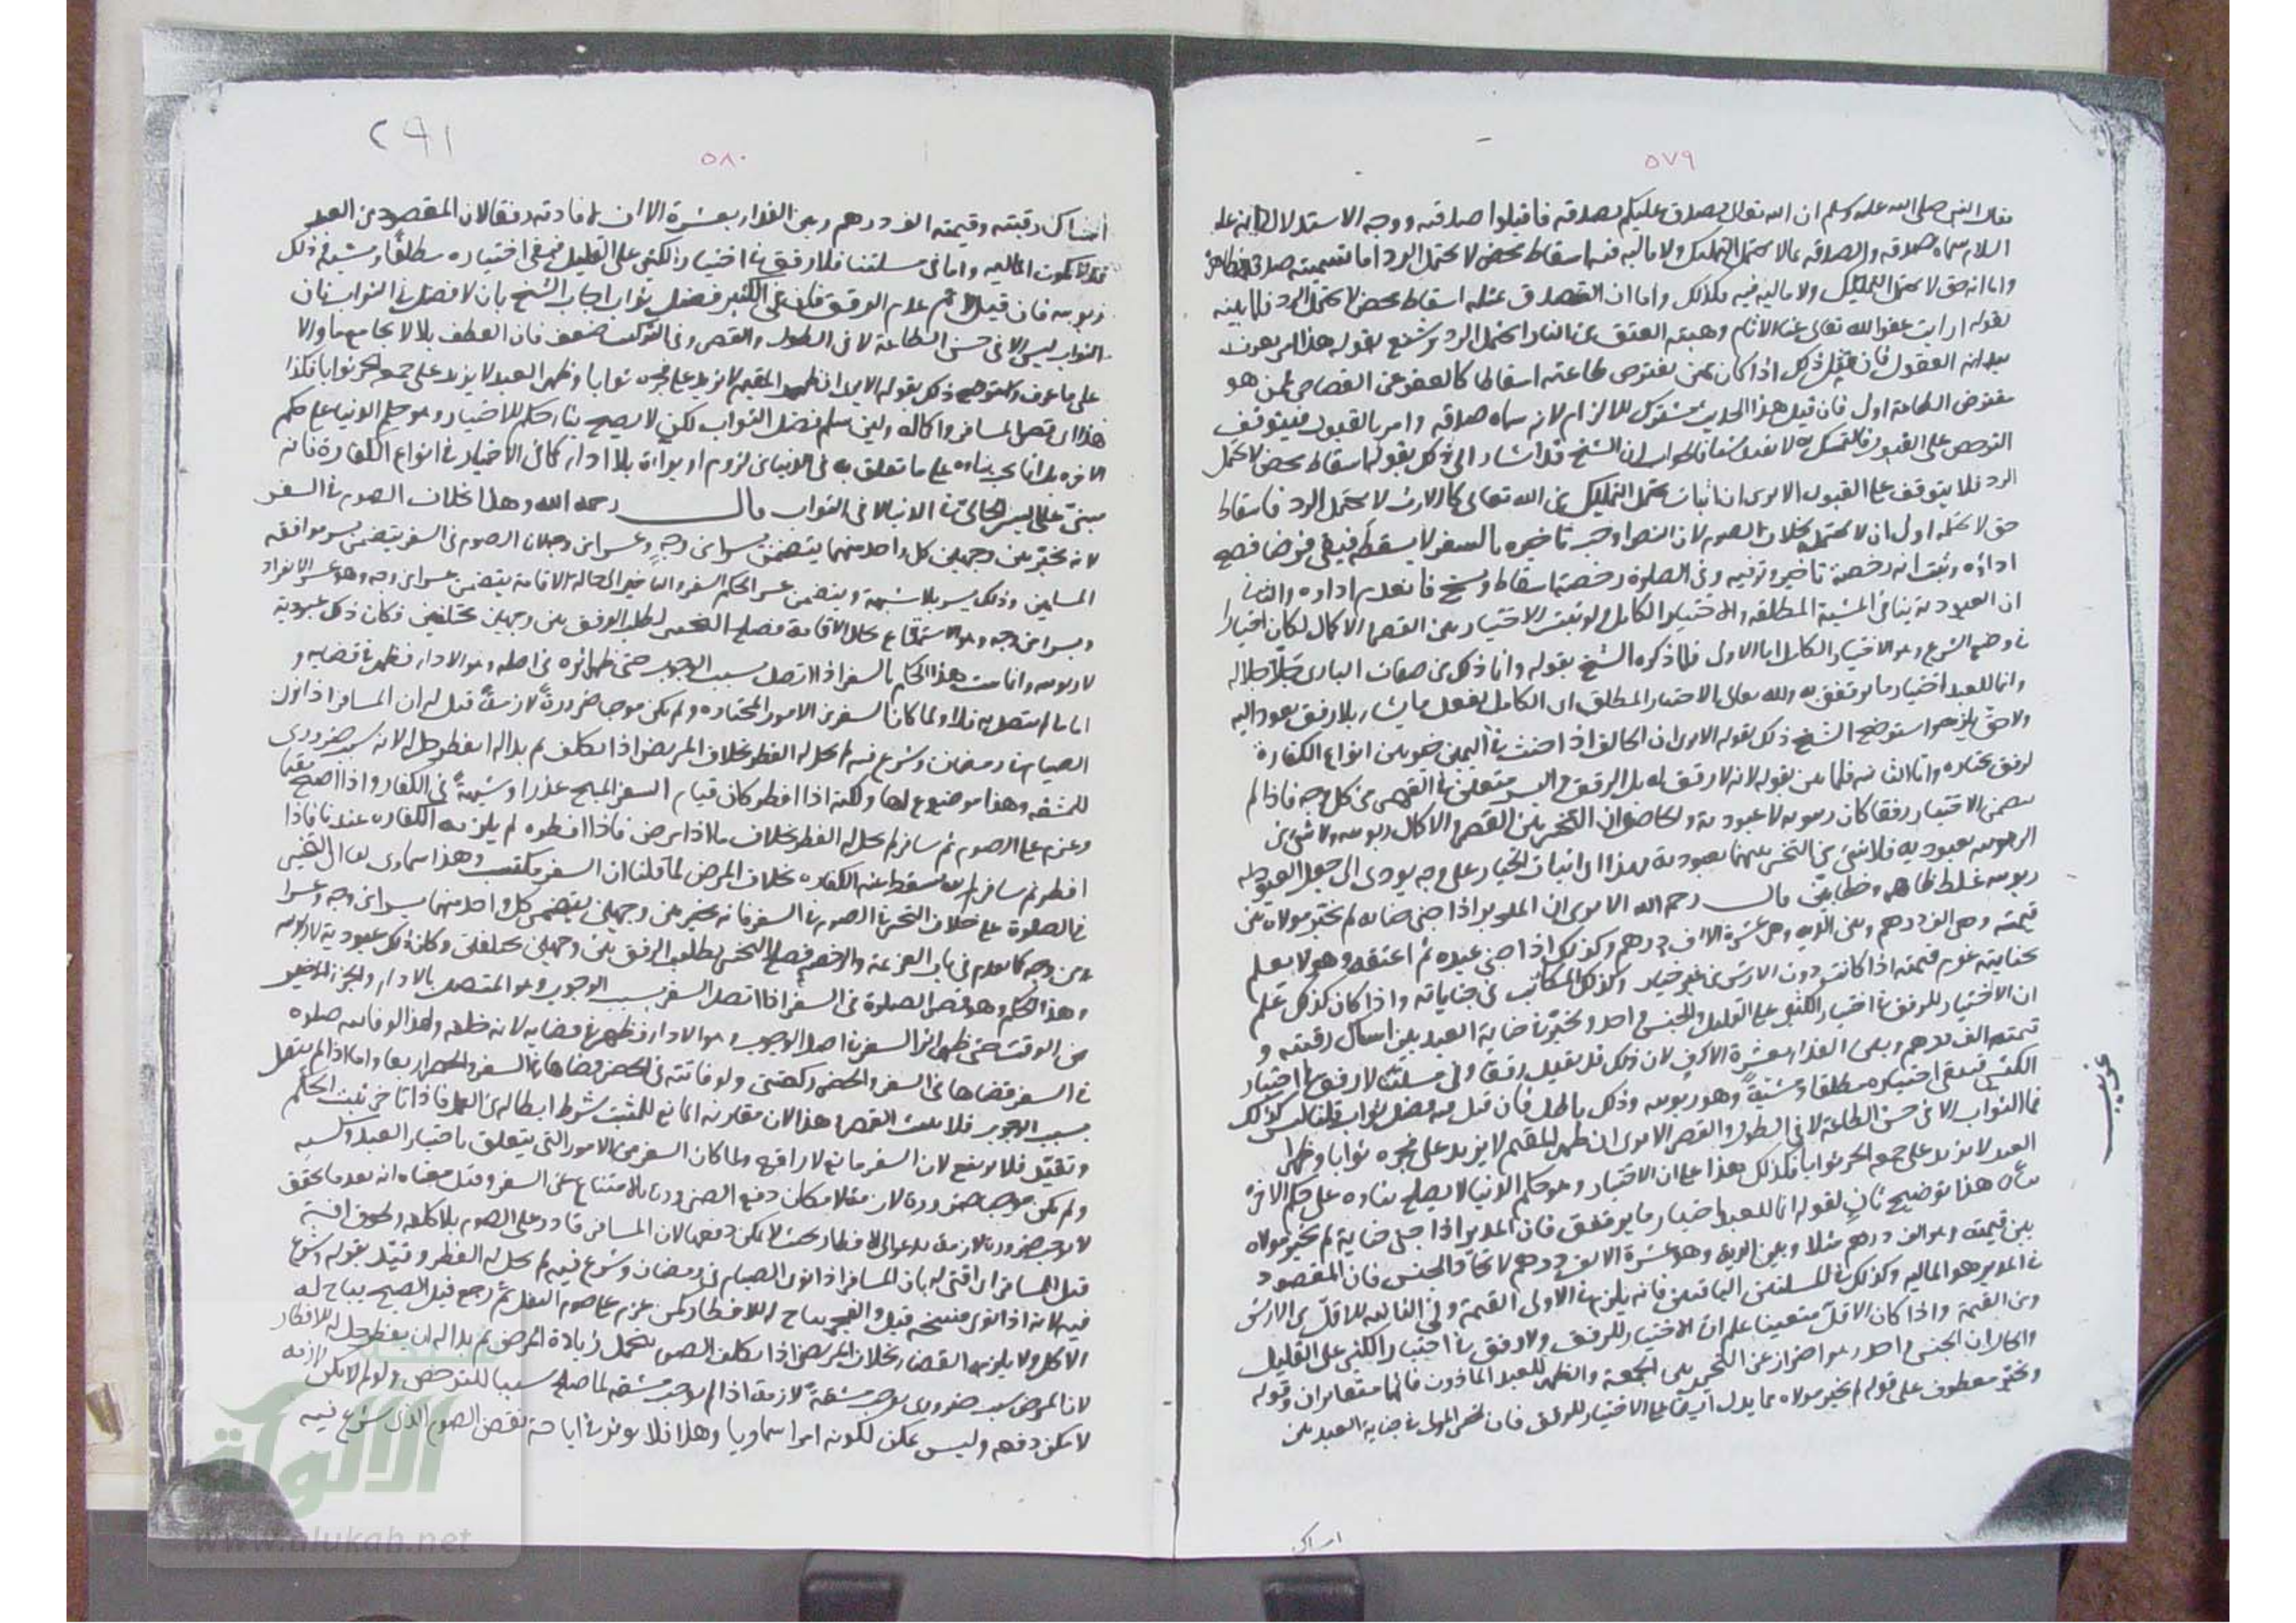 ٥٧٩
فقال النبي صلى الله عليه وسلم ان الله تعالى تصدق عليكم بصدقة فاقبلوا صدقته ووجه الاستدلال انه عليه
السلام سماه صدقة والصدقة بما لا يحتمل التمليك ولا ماليه فيه اسقاط محض لا يحتمل الرد اما تسميته صدقة
واما انه حق لا يحتمل التمليك ولا ماليه فيه فكذلك واما ان التصدق بمثله اسقاط محض لا يحتمل الرد فلما بينه
بقوله ارايت عفو الله تعالى عنا الاثام وهبته العتق من النار ايحتمل الرد وشنع بقوله هذا امر يعرف
ببداية العقول فان قيل ذلك اذا كان ممن يفترض طاعته اسقاطا كالعفو عن القصاص فمن هو
مفترض الطاعة اولى فان قيل هذا الحديث مشترك للالزام لانه سماه صدقة وامر بالقبول فيتوقف
الترخص على القبول فالتمسك به لا يفيد فالجواب ان الشيخ قد اشار الى ذلك بقوله اسقاط محض لا يحتمل
الرد فلا يتوقف على القبول الا يرى ان اثبات يحتمل التمليك من الله تعالى كالارث لا يحتمل الرد فاسقاط
حق لا يحتمله اولى ان لا يحتمله بخلاف الصوم لان النص اوجب تاخيره بالسفر لا يسقطه فبقي فرضا فصح
اداؤه وثبت انه رخصة تاخير وترفيه وفي الصلوة رخصة اسقاط ونسخ فانعدم اداؤه والثاني
ان العبودية ينافي المشية المطلقة والاختيار الكامل ولو ثبت الاختيار بين القصر والاكمال لكان اختيارا
في وضع الشرع وهو الاختيار الكامل اما الاولى فلما ذكره الشيخ بقوله وانما ذلك من صفات الباري جل جلاله
وانما للعبد اختيار ما يرتفق به ولله تعالى الاختيار المطلق اي الكامل يفعل ما يشاء بلا رفق يعود اليه
ولا حق يلزمه واستوضح الشيخ ذلك بقوله الا يرى ان الحالف اذا حنث في اليمين خير بين انواع الكفارة
لرفق يختاره واما الثانية فلما بين بقوله لانه لا رفق له بل الرفق واليسر متعين في القصر من كل وجه فاذا لم
يتضمن الاختيار رفقا كان ربوبية لا عبودية والحاصل ان التخيير بين القصر والاكمال ربوبية ولا شيء من
الربوبية بعبودية فلا شيء من التخيير بينهما بعبودية لهذا اي اثبات الخيار على وجه يودي الى جعل العبودية
ربوبية غلط ظاهر وخطا بين قال رحمه الله الا يرى ان المدبر اذا جنى جناية لم يخير مولاه بين
قيمته وهي الف درهم وبين الدية وهي عشرة الاف درهم وكذلك اذا جنى عبده ثم اعتقه وهو لا يعلم
بجنايته غرم قيمته اذا كانت دون الارش من غير خيار وكذلك المكاتب في جناياته واذا كان كذلك علم
ان الاختيار للرفق في اختيار الكثير على القليل والجنس واحد ويخير في جناية العبد بين امساك رقبته و
قيمته الف درهم وبين الفداء بعشرة الاف لان ذلك قد يفيد رفقا وفي مسئلتنا لا رفق في اختيار
الكثير فيبقى اختيارا مطلقا ومشيئة وهو ربوبية وذلك باطل فان قيل فيه فضل ثواب قلنا ليس كذلك
فما الثواب الا في حسن الطاعة لا في الطول والقصر الا يرى ان ظهر المقيم لا يزيد على فجره ثوابا وظهر
العبد لا يزيد على جمعة الحر ثوابا فكذلك هذا على ان الاختيار وهو حكم الدنيا لا يصلح بناؤه على حكم الاخرة
هذا توضيح ثان لقوله انما للعبد اختيار ما يرتفق فان المدبر اذا جنى جناية لم يخير مولاه
بين قيمته وهو الف درهم مثلا وبين الدية وهو عشرة الاف درهم لاتحاد الجنس فان المقصود
في المدبر هو المالية وكذلك في المسئلتين الباقيتين فانه يلزم في الاولى القيمة وفي الثالثة الاقل من الارش
ومن القيمة واذا كان الاقل متعينا علم ان الاختيار للرفق ولا رفق في اختيار الكثير على القليل
والحال ان الجنس واحد وهو احتراز عن التخيير بين الجمعة والظهر للعبد الماذون فانهما متغايران وقوله
ويخير معطوف على قوله لم يخير مولاه مما يدل ايضا على الاختيار للرفق فان تخير المولى في جناية العبد بين
غريب
امساك
٢٩١
٥٨٠
امساك رقبته وقيمته الف درهم وبين الفداء بعشرة الاف لافادته رفقا لان المقصود من العبد
قد لا يكون المالية واما في مسئلتنا فلا رفق في اختيار الكثير على القليل فبقي اختياره مطلقا ومشية وذلك
ربوبية فان قيل لا نم عدم الرفق فان في الكثير فضل ثواب اجاب الشيخ بان لا فضل في الثواب فان
الثواب ليس الا في حسن الطاعة لا في الطول والقصر وفي التركيب ضعف فان العطف بلا لا يجامع ما والا
على ما عرف واستوضح ذلك بقوله الا يرى ان ظهر المقيم لا يزيد على فجره ثوابا وظهر العبد لا يزيد على جمعة الحر ثوابا فكذا
هذا اي قصر المسافر واكماله ولئن سلم فضل الثواب لكن لا يصح بناء حكم الاختيار وهو حكم الدنيا على حكم
الاخرة بل انما يجب بناؤه على ما تعلق به في الدنيا من لزوم او براءة بلا اداء كما في الاختيار في انواع الكفارة فانه
مبني على اليسر الحاصل في الدنيا لا في الثواب قال رحمه الله وهذا بخلاف الصوم في السفر
لانه مخير بين وجهين كل واحد منهما يتضمن يسرا من وجه وعسرا من وجه لان الصوم في السفر يتضمن يسر موافقة
المسلمين وذلك يسر بلا شبهة ويتضمن عسرا لحكم السفر والتاخير الى حالة الاقامة يتضمن عسرا من وجه وهو عسر الانفراد
ويسرا من وجه وهو الاستمتاع بحال الاقامة فصلح التخيير لطلب الرفق بين وجهين مختلفين فكان ذلك عبودية
لا ربوبية وانما يثبت هذا الحكم بالسفر اذا اتصل بسبب الوجوب حتى ظهر اثره في اصله وهو الاداء فظهر في قضائه و
اما ما لم يتصل به فلا ولما كان السفر من الامور المختارة ولم يكن موجبا ضرورة لازمة قيل له ان المسافر اذا نوى
الصيام في رمضان وشرع فيه لم يحل له الفطر بخلاف المريض اذا تكلف ثم بدا له ان يفطر حل له لانه سبب ضروري
للمشقة وهذا موضوع لها ولكنه اذا افطر كان قيام السفر المبيح عذرا وشبهة في الكفارة واذا اصبح مقيما
وعزم على الصوم ثم سافر لم يحل له الفطر بخلاف ما اذا مرض فاذا افطره لم يلزمه الكفارة عندنا فاذا
افطر ثم سافر لم يسقط عنه الكفارة بخلاف المرض لما قلنا ان السفر مكتسب وهذا سماوي يعني ان التخيير
في الصلوة على خلاف التخيير في الصوم في السفر فانه مخير بين وجهين يتضمن كل واحد منهما يسرا من وجه وعسرا
من وجه كما تقدم في باب العزيمة والرخصة فصلح التخيير لطلب الرفق بين وجهين مختلفين وكان ذلك عبودية لا ربوبية
وهذا الحكم وهو قصر الصلوة في السفر اذا اتصل السفر بسبب الوجوب وهو المتصل بالاداء والجزء الاخير
من الوقت حتى ظهر اثر السفر في اصل الوجوب وهو الاداء فظهر في قضائه لانه خلفه ولهذا لو فاتته صلوة
في السفر قضاها في السفر والحضر ركعتين ولو فاتته في الحضر قضاها في السفر والحضر اربعا واما اذا لم يتصل
بسبب الوجوب فلا يثبت القصر هذا لان مقارنة المانع للمثبت شرط ابطاله من العمل فاذا تاخر يثبت الحكم
وتقيد فلا يرتفع لان السفر مانع لا رافع ولما كان السفر من الامور التي يتعلق باختيار العبد وكسبه
ولم يكن موجبا ضرورة لازمة لامكان دفع الضرورة بالامتناع عن السفر وقيل معناه انه بعد ما تحقق
لا يوجب ضرورة لازمة يدعو الى الافطار بحيث لا يمكن دفعها لان المسافر قادر على الصوم بلا كلفة ولحوق افة
قيل للمسافر اي افتي له بان المسافر اذا نوى الصيام في رمضان وشرع فيه لم يحل له الفطر وقيد بقوله وشرع
فيه لانه اذا نوى فنسخه قبل الفجر يباح له الافطار كمن عزم على صوم النفل ثم رجع قبل الصبح يباح له
الاكل ولا يلزمه القضاء بخلاف المريض اذا تكلف الصوم بتحمل زيادة المرض ثم بدا له ان يفطر حل له الافطار
لان المرض سبب ضروري يوجب مشقة لازمة اذ لم يوجب مشقة لما صلح سببا للترخص ولو لم لا يمكن لازمة
لا يمكن دفعه وليس يمكن لكونه امرا سماويا وهذا فلا يؤثر في اباحة نقض الصوم الذي شرع فيه
الألوكة
www.alukah.net